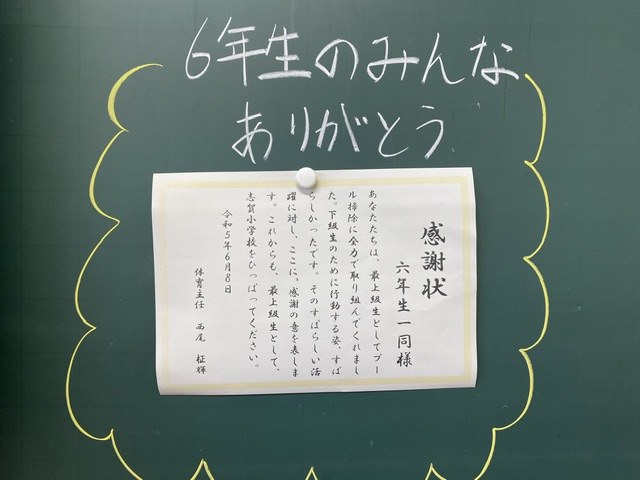 6年生のみんな
ありがとう
感謝状
六年生一同様
あなたたちは、最上級生としてプー
ル掃除に全力で取り組んでくれまし
た。下級生のために行動する姿、すば
らしかったです。そのすばらしい活
躍に対し、ここに、感謝の意を表しま
す。これからも、最上級生として、
志賀小学校をひっぱってください。
令和5年6月8日
体育主任 西尾 柾輝